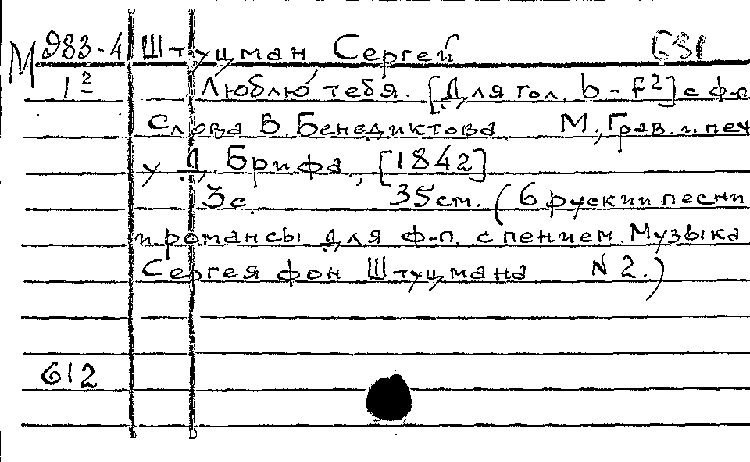 М 983-4 Штуцман Сергей
1² Люблю тебя. [Для гол. b - F²] с ф-п
Слова В. Бенедиктова М., Грав. и печ
у Л. Брифа, [1842]
3с. 35см. (6 руских песни
и романсы для ф-п. с пением. Музыка
Сергея фон Штуцмана N 2.)
612